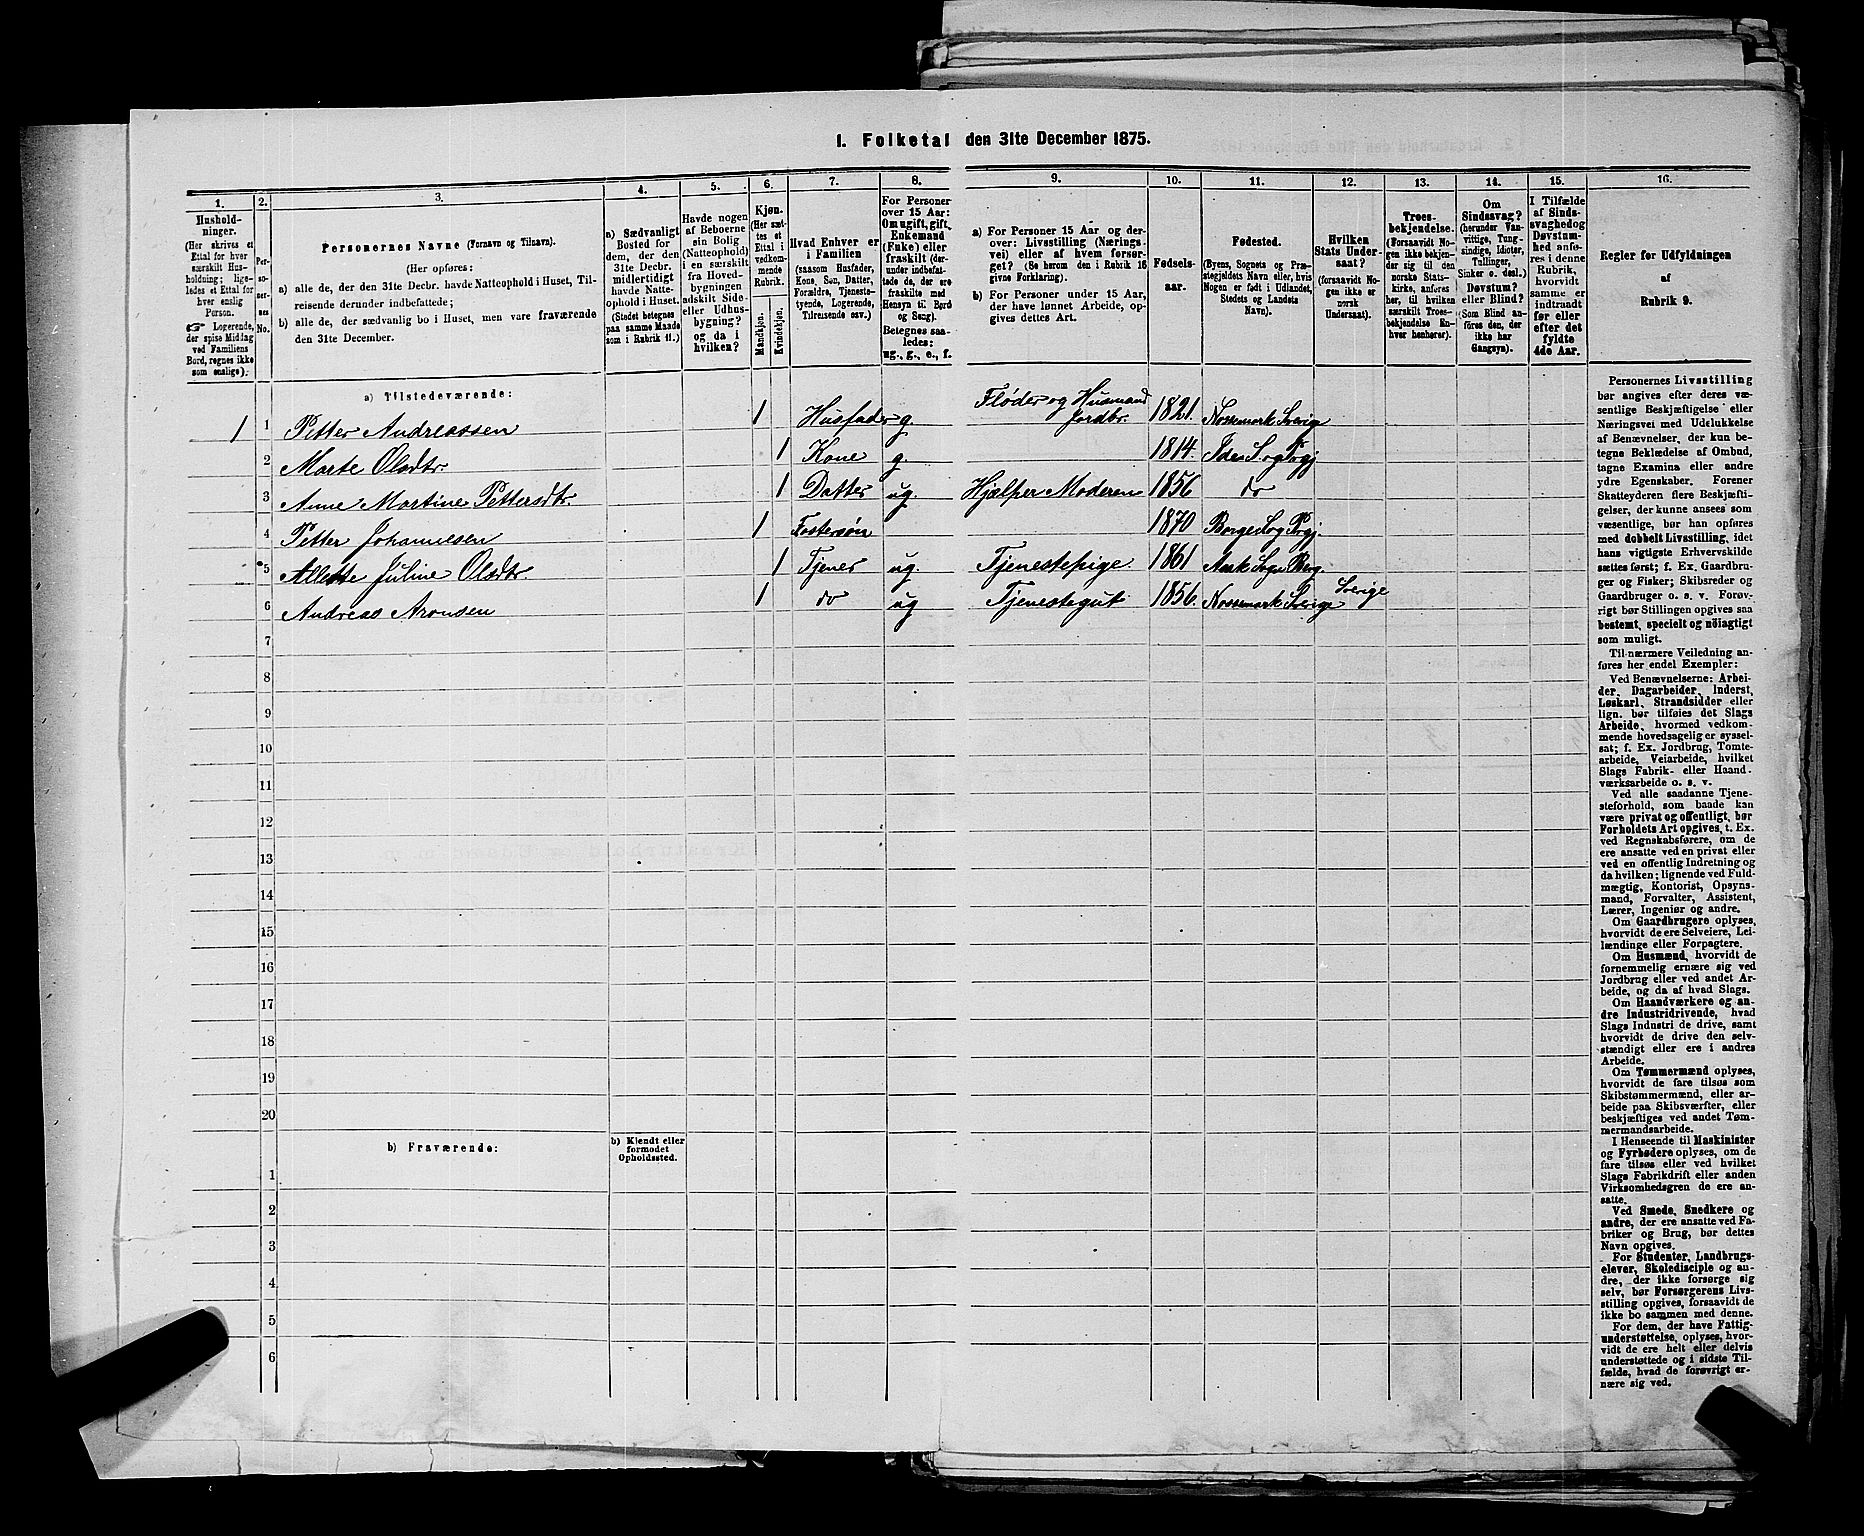 1. Folketal den 31te December 1875.
1. 2. 3. 4. 5. 6. 7. 8. 9. 10. 11. 12. 13. 14. 15. 16.
Hushold-
ninger.
(Her skrives et
Ettal for hver
særskilt Hus-
holdning; lige-
ledes et Ettal for
hver enslig
Person.
☞ Logerende,
der spise Middag
ved Familiens
Bord, regnes ikke
som enslige).
Per-
so-
ner-
nes
No.
Personernes Navne (Fornavn og Tilnavn).
(Her opføres:
a) alle de, der den 31te Decbr. havde Natteophold i Huset, Til-
reisende derunder indbefattede;
b) alle de, der sædvanlig bo i Huset, men vare fraværende
den 31te December.
a) Sædvanligt
Bosted for
dem, der den
31te Decbr.
midlertidigt
havde Natte-
ophold i Huset.
(Stedet betegnes
paa samme Maade
som i Rubrik 11.)
Havde nogen
af Beboerne
sin Bolig
(Natteophold)
i en særskilt
fra Hoved-
bygningen
adskilt Side-
eller Udhus-
bygning?
og da i
hvilken?
Kjøn.
(Her sæt-
tes et
Ettal i
vedkom-
mende
Rubrik.
Mandkjøn.
Kvindekjøn.
Hvad Enhver er
i Familien
(saasom Husfader,
Kone, Søn, Datter,
Forældre, Tjeneste-
tyende, Logerende,
Tilreisende osv.)
For Personer
over 15 Aar:
Om ugift, gift,
Enkemand
(Enke) eller
fraskilt (der-
under indbefat-
tede de, der ere
fraskilte med
Hensyn til Bord
og Seng).
Betegnes saa-
ledes:
ug., g., e., f.
a) For Personer 15 Aar og der-
over: Livsstilling (Nærings-
vei) eller af hvem forsør-
get? (Se herom den i Rubrik 16
givne Forklaring).
b) For Personer under 15 Aar,
der have lønnet Arbeide, op-
gives dettes Art.
Fødsels-
aar.
Fødested.
(Byens, Sognets og Præ-
stegjeldets Navn eller, hvis
Nogen er født i Udlandet,
Stedets og Landets
Navn).
Hvilken
Stats Under-
saat?
(forsaavidt No-
gen ikke er
norsk
Undersaat).
Troes-
bekjendelse.
(Forsaavidt No-
gen ikke bekjen-
der sig til den
norske Stats-
kirke, anføres
her, til hvilken
særskilt Troes-
bekjendelse En-
hver henhører).
Om
Sindssvag?
(herunder Van-
vittige, Tung-
sindige, Idioter,
Tullinger,
Sinker o. desl.)
Døvstum?
eller Blind?
(Som Blind an-
føres den, der
ikke har
Gangsyn).
I Tilfælde
af Sinds-
svaghed og
Døvstum-
hed anfø-
res i denne
Rubrik,
hvorvidt
samme er
indtraadt
før eller
efter det
fyldte
4de Aar.
Regler for Udfyldningen
af
Rubrik 9.
a) Tilstedeværende:
1 1 Petter Andreassen 1 Husfader g. Fløder og Husmand Jordbr. 1821. Nossemark Sverige
2 Marte Olsdtr 1 Kone g. 1814. Ide S. og Prgj
3 Anne Martine Pettersdtr. 1 Datter ug. Hjælper Moderen 1856 do
4 Petter Johannesen 1 Fostersøn 1870 Borge Sog Prgj
5 Allette Juline Olsdtr. 1 Tjener ug. Tjenestepige. 1861 Aark Sogn Berg.
6 Andreas Aronsen 1 do ug Tjenestegut 1856. Nossemark Sverige Sverige
7
8
9
10
11
12
13
14
15
16
17
18
19
20
b) Fraværende:
b) Kjendt eller
formodet
Opholdssted.
1
2
3
4
5
6
Personernes Livsstilling
bør angives efter deres væ-
sentlige Beskjæftigelse eller
Næringsvei med Udelukkelse
af Benævnelser, der kun be-
tegne Beklædelse af Ombud,
tagne Examina eller andre
ydre Egenskaber. Forener
Skatteyderen flere Beskjæfti-
gelser, der kunne ansees som
væsentlige, bør han opføres
med dobbelt Livsstilling, idet
hans vigtigste Erhvervskilde
sættes først; f. Ex. Gaardbru-
ger og Fisker; Skibsreder og
Gaardbruger o. s. v. Forøv-
rigt bør Stillingen opgives saa
bestemt, specielt og nöiagtigt
som muligt.
Til nærmere Veiledning an-
føres her endel Exempler:
Ved Benævnelserne: Arbei-
der, Dagarbeider, Inderst,
Løskarl, Strandsidder eller
lign. bør tilføies det Slags
Arbeide, hvormed vedkom-
mende hovedsagelig er syssel-
sat; f. Ex. Jordbrug, Tomte-
arbeide, Veiarbeide, hvilket
Slags Fabrik- eller Haand-
værksarbeide o. s. v.
Ved alle saadanne Tjene-
steforhold, som baade kan
være privat og offentligt, bør
Forholdets Art opgives, t. Ex.
ved Regnskabsførere, om de
ere ansatte ved en privat eller
ved en offentlig Indretning og
da hvilken; lignende ved Fuld-
mægtig, Kontorist, Opsyns-
mand, Forvalter, Assistent,
Lærer, Ingeniør og andre.
Om Gaardbrugere oplyses,
hvorvidt de ere Selveiere, Lei-
lændinge eller Forpagtere.
Om Husmænd, hvorvidt de
fornemmelig ernære sig ved
Jordbrug eller ved andet Ar-
beide, og da af hvad Slags.
Om Haandværkere og an-
dre Industridrivende, hvad
Slags Industri de drive, samt
hvorvidt de drive den selv-
stændigt eller ere i andres
Arbeide.
Om Tømmermænd oplyses,
hvorvidt de fare tilsøs som
Skibstømmermænd, eller ar-
beide paa Skibsværfter, eller
beskjæftiges ved andet Tøm-
mermandsarbeide.
I Henseende til Maskinister
og Fyrbødere oplyses, om de
fare tilsøs eller ved hvilket
Slags Fabrikdrift eller anden
Virksomhedsgren de ere an-
satte.
Ved Smede, Snedkere og
andre, der ere ansatte ved Fa-
briker og Brug, bør dettes
Navn opgives.
For Studenter, Landbrugs-
elever, Skoledisciple og an-
dre, der ikke forsørge sig
selv, bør Forsørgerens Livs-
stilling opgives, forsaavidt de
ikke bo sammen med denne.
For dem, der have Fattig-
understøttelse, oplyses, hvor-
vidt de ere helt eller delvis
understøttede og i sidste Til-
fælde, hvad de forøvrigt er-
nære sig ved.